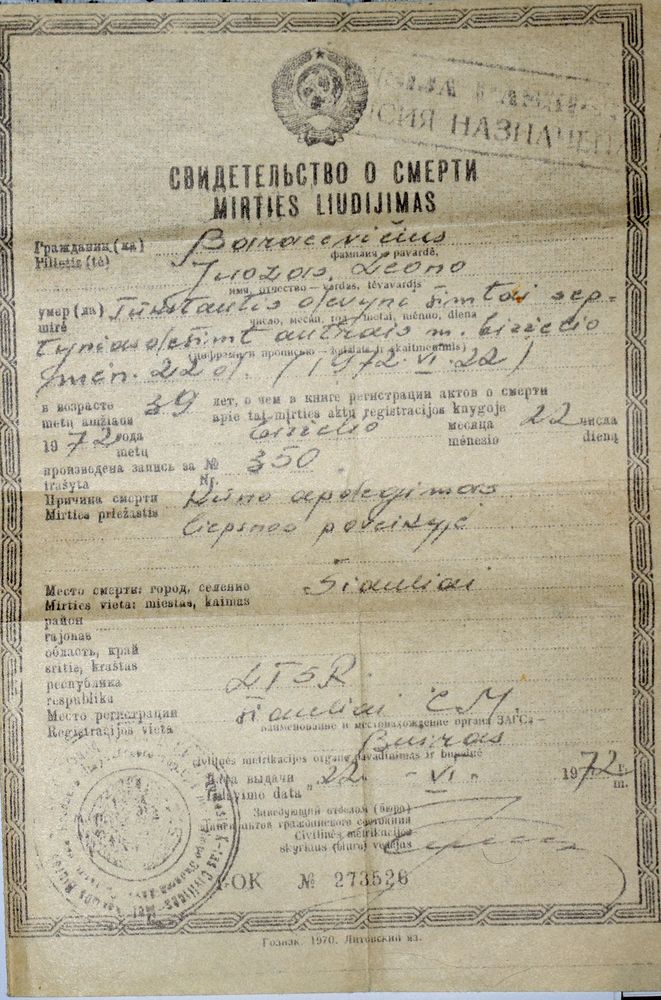 НАЗНАЧЕН
СВИДЕТЕЛЬСТВО О СМЕРТИ
MIRTIES LIUDIJIMAS
Гражданин (ка)
Pilietis (tė)
Baracevičius
фамилия — pavardė,
Juozas, Leono
имя, отчество — vardas, tėvavardis
умер (ла) Tūkstantis devyni šimtai sep-
mirė
число, месяц, год — metai, mėnuo, diena
tyniasdešimt antrais m. birželio
(цифрами и прописью — žodžiais ir skaitmenimis)
mėn. 22 d. (1972. VI. 22)
в возрасте 39 лет, о чем в книге регистрации актов о смерти
metų amžiaus apie tai mirties aktų registracijos knygoje
1972 года birželio месяца 22 числа
metų mėnesio dieną
произведена запись за № 350
įrašyta Nr.
Причина смерти Kūno apdegimas
Mirties priežastis
liepsnos poveikyje
Место смерти: город, селение Šiauliai
Mirties vieta: miestas, kaimas
район
rajonas
область, край
sritis, kraštas
республика LTSR
respublika
Место регистрации Šiauliai CM
Registracijos vieta
наименование и местонахождение органа ЗАГСа —
Biuras
civilinės metrikacijos organo pavadinimas ir buveinė
Дата выдачи „22 - VI - 1972 г.
Išdavimo data m.
Заведующий отделом (бюро)
актов гражданского состояния
Civilinės metrikacijos
skyriaus (biuro) vedėjas
I-ОК № 273526
Гознак. 1970. Литовский яз.